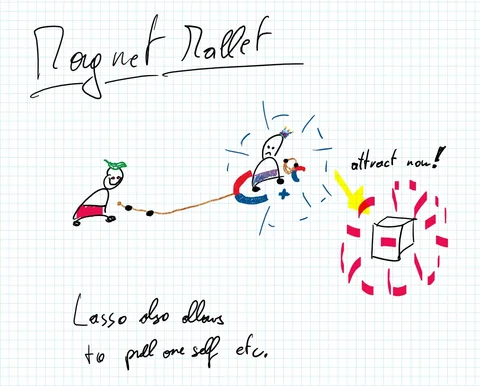 Magnet Mallet
attract now!
Lasso also allows
to pull oneself etc.